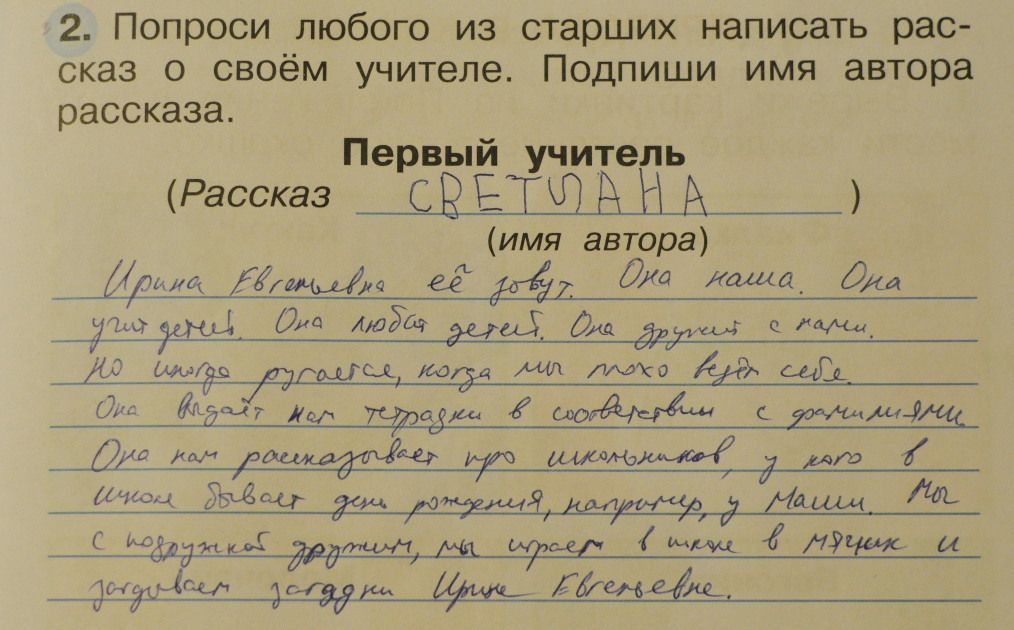 2. Попроси любого из старших написать рас-
сказ о своём учителе. Подпиши имя автора
рассказа.
Первый учитель
(Рассказ СВЕТЛАНА )
(имя автора)
Ирина Евгеньевна её зовут. Она наша. Она
учит детей. Она любит детей. Она дружит с нами.
Но иногда ругается, когда мы плохо ведём себя.
Она выдаёт нам тетрадки в соответствии с фамилиями.
Она нам рассказывает про школьников, у кого в
школе бывает день рождения, например, у Маши. Мы
с подружкой дружим, мы играем в школе в мячик и
загадываем загадки Ирине Евгеньевне.